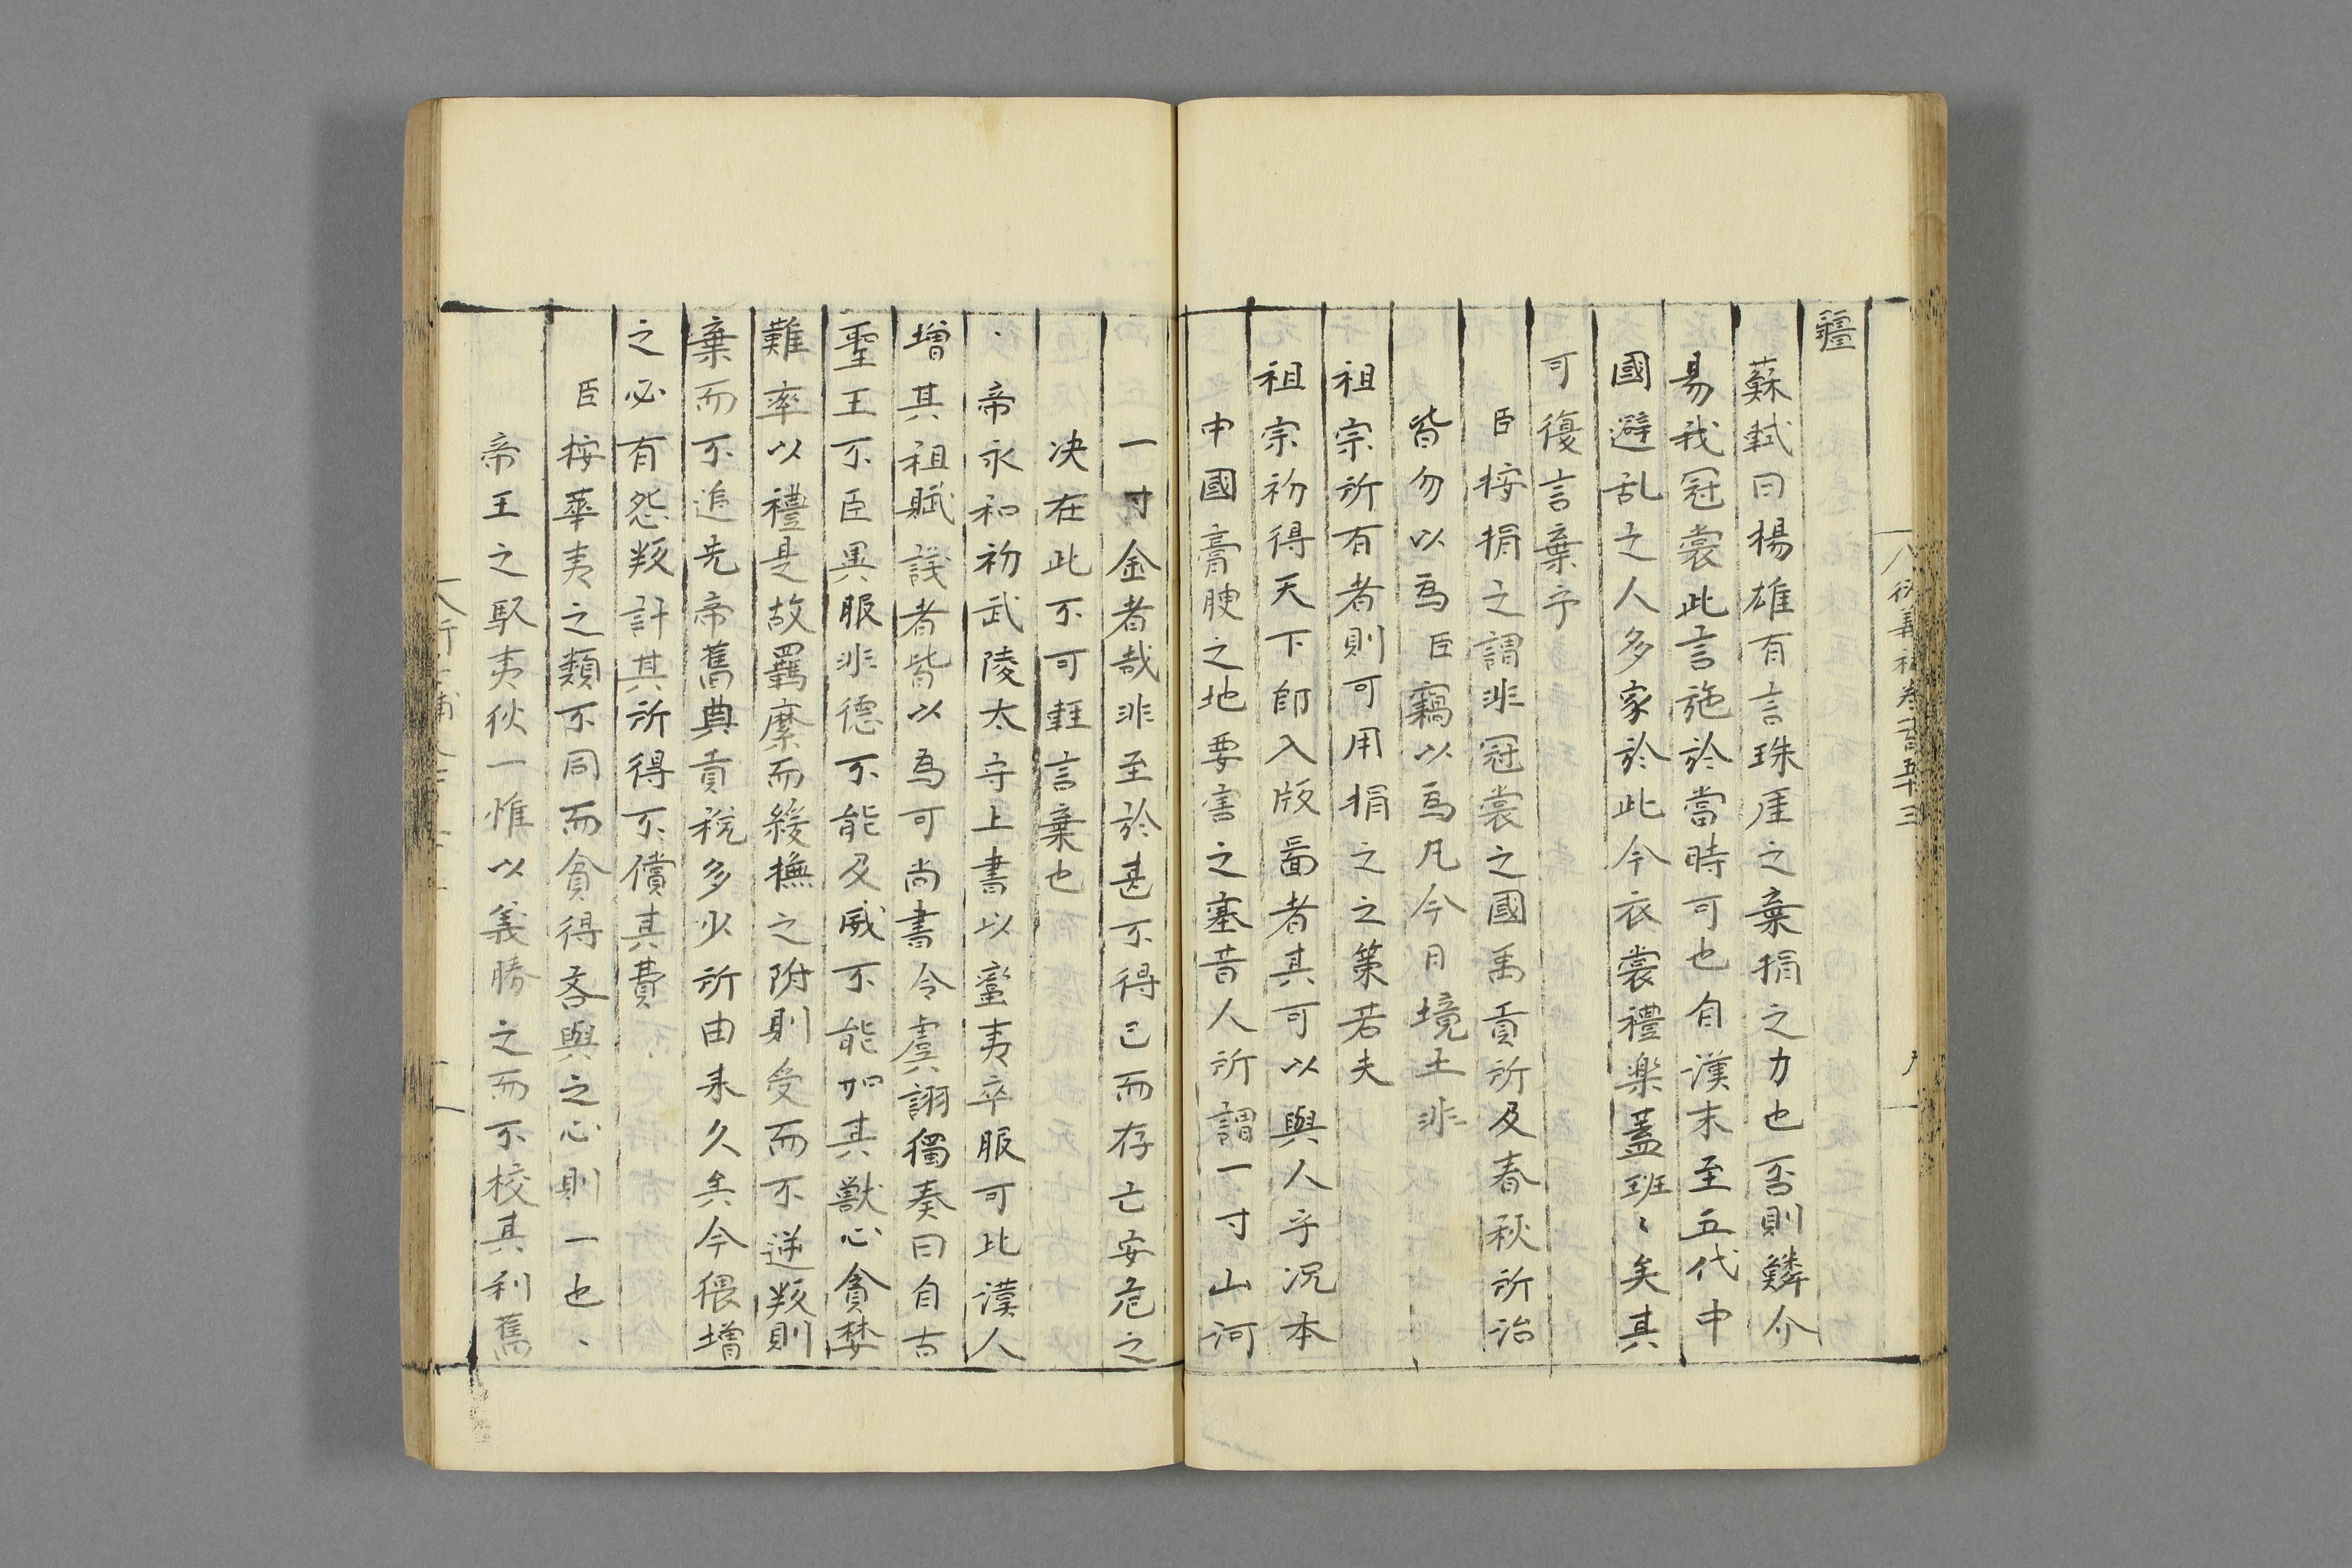 衍義補卷一百五十三
疆
蘇軾曰楊雄有言珠厓之棄捐之力也否則鱗介
易我冠裳此言施於當時可也自漢末至五代中
國避乱之人多家於此今衣裳禮楽蓋班〻矣其
可復言棄乎
臣按捐之謂非冠裳之國禹貢所及春秋所治
皆勿以爲臣竊以爲凡今日境土非
祖宗所有者則可用捐之之策若夫
祖宗初得天下即入版啚者其可以與人乎况本
中國膏腴之地要害之塞昔人所謂一寸山河
一寸金者哉非至於甚不得已而存亡安危之
决在此不可輕言棄也
帝永和初武陵太守上書以蠻夷卒服可比漢人
增其租賦議者皆以爲可尚書令虞詡獨奏曰自古
聖王不臣異服非德不能及威不能加其獣心貪婪
難率以禮是故羈縻而綏撫之附則受而不逆叛則
棄而不追先帝舊典貢稅多少所由来久矣今猥增
之必有怨叛計其所得不償其費
臣按華夷之類不同而貪得吝與之心則一也、
帝王之馭夷狄一惟以義勝之而不校其利舊